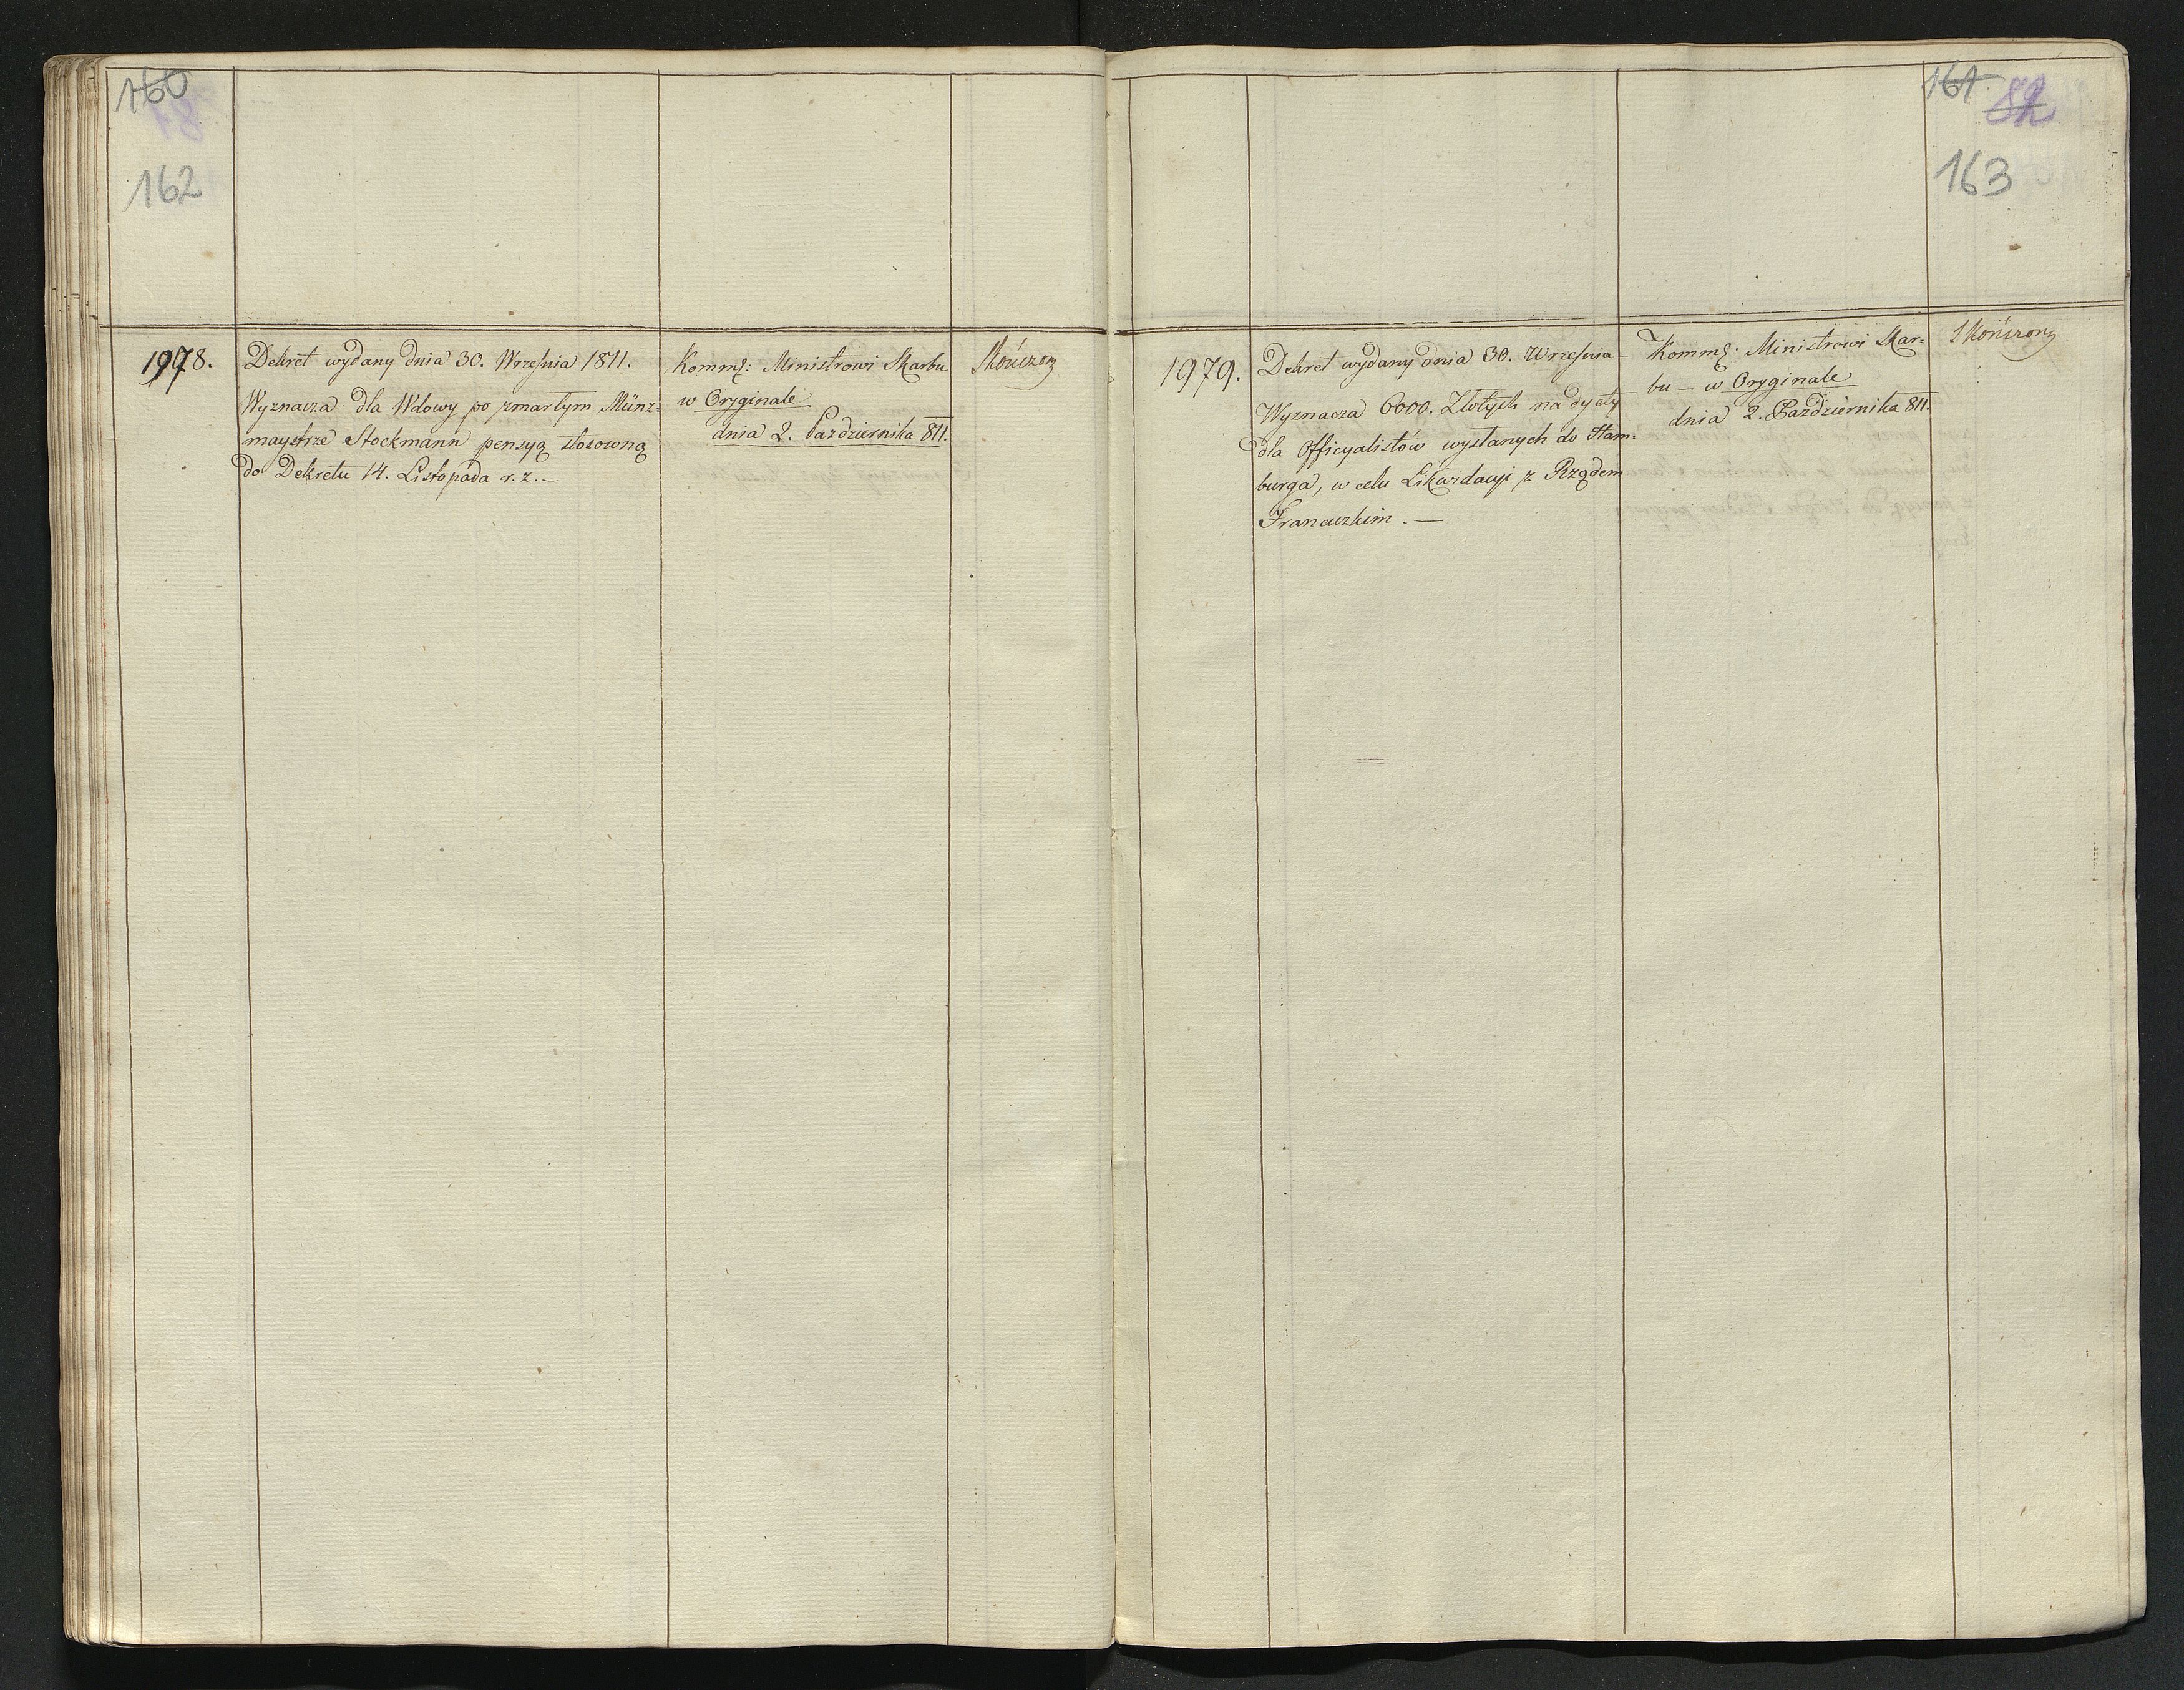 160
162
1978.
Dekret wydany dnia 30. Września 1811.
Wyznacza dla Wdowy po zmarłym Münz-
maystrze Stockmann pensyą stosowną
do Dekretu 14. Listopada r. z. —
Kommę: Ministrowi Skarbu
w Oryginale
dnia 2. Października 811.
Skończony
161. 82
163
1979.
Dekret wydany dnia 30. Września —
Wyznacza 6000. Złotych na dyety
dla Officyalistów wysłanych do Ham-
burga, w celu Likwidacyi z Rządem
Francuzkim. —
Kommę: Ministrowi Skar-
bu — w Oryginale
dnia 2. Października 811.
Skończony